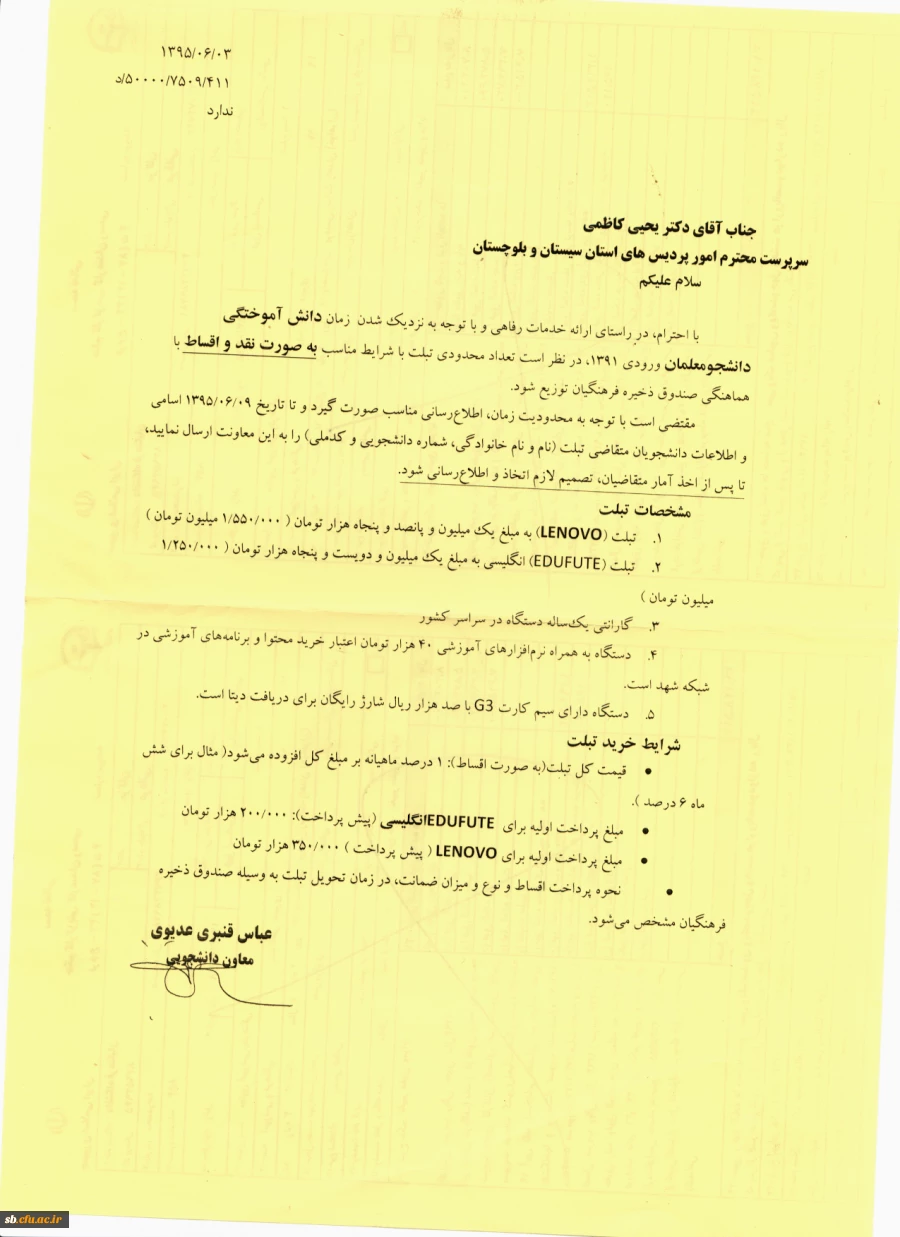 ۱۳۹۵/۰۶/۰۳
۵۰۰۰۰/۷۵۰۹/۴۱۱/د
ندارد
جناب آقای دکتر یحیی کاظمی
سرپرست محترم امور پردیس های استان سیستان و بلوچستان
سلام علیکم
با احترام، در راستای ارائه خدمات رفاهی و با توجه به نزدیک شدن زمان دانش آموختگی
دانشجومعلمان ورودی ۱۳۹۱، در نظر است تعداد محدودی تبلت با شرایط مناسب به صورت نقد و اقساط با
هماهنگی صندوق ذخیره فرهنگیان توزیع شود.
مقتضی است با توجه به محدودیت زمان، اطلاع‌رسانی مناسب صورت گیرد و تا تاریخ ۱۳۹۵/۰۶/۰۹ اسامی
و اطلاعات دانشجویان متقاضی تبلت (نام و نام خانوادگی، شماره دانشجویی و کدملی) را به این معاونت ارسال نمایید،
تا پس از اخذ آمار متقاضیان، تصمیم لازم اتخاذ و اطلاع‌رسانی شود.
مشخصات تبلت
۱. تبلت (LENOVO) به مبلغ یک میلیون و پانصد و پنجاه هزار تومان ( ۱/۵۵۰/۰۰۰ میلیون تومان )
۲. تبلت (EDUFUTE) انگلیسی به مبلغ یک میلیون و دویست و پنجاه هزار تومان ( ۱/۲۵۰/۰۰۰
میلیون تومان )
۳. گارانتی یک‌ساله دستگاه در سراسر کشور
۴. دستگاه به همراه نرم‌افزارهای آموزشی ۴۰ هزار تومان اعتبار خرید محتوا و برنامه‌های آموزشی در
شبکه شهد است.
۵. دستگاه دارای سیم کارت G3 با صد هزار ریال شارژ رایگان برای دریافت دیتا است.
شرایط خرید تبلت
• قیمت کل تبلت(به صورت اقساط): ۱ درصد ماهیانه بر مبلغ کل افزوده می‌شود( مثال برای شش
ماه ۶ درصد ).
• مبلغ پرداخت اولیه برای EDUFUTE انگلیسی (پیش پرداخت): ۲۰۰/۰۰۰ هزار تومان
• مبلغ پرداخت اولیه برای LENOVO ( پیش پرداخت ) ۳۵۰/۰۰۰ هزار تومان
• نحوه پرداخت اقساط و نوع و میزان ضمانت، در زمان تحویل تبلت به وسیله صندوق ذخیره
فرهنگیان مشخص می‌شود.
عباس قنبری عدیوی
معاون دانشجویی
sb.cfu.ac.ir